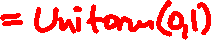 = Uniform(0,1)